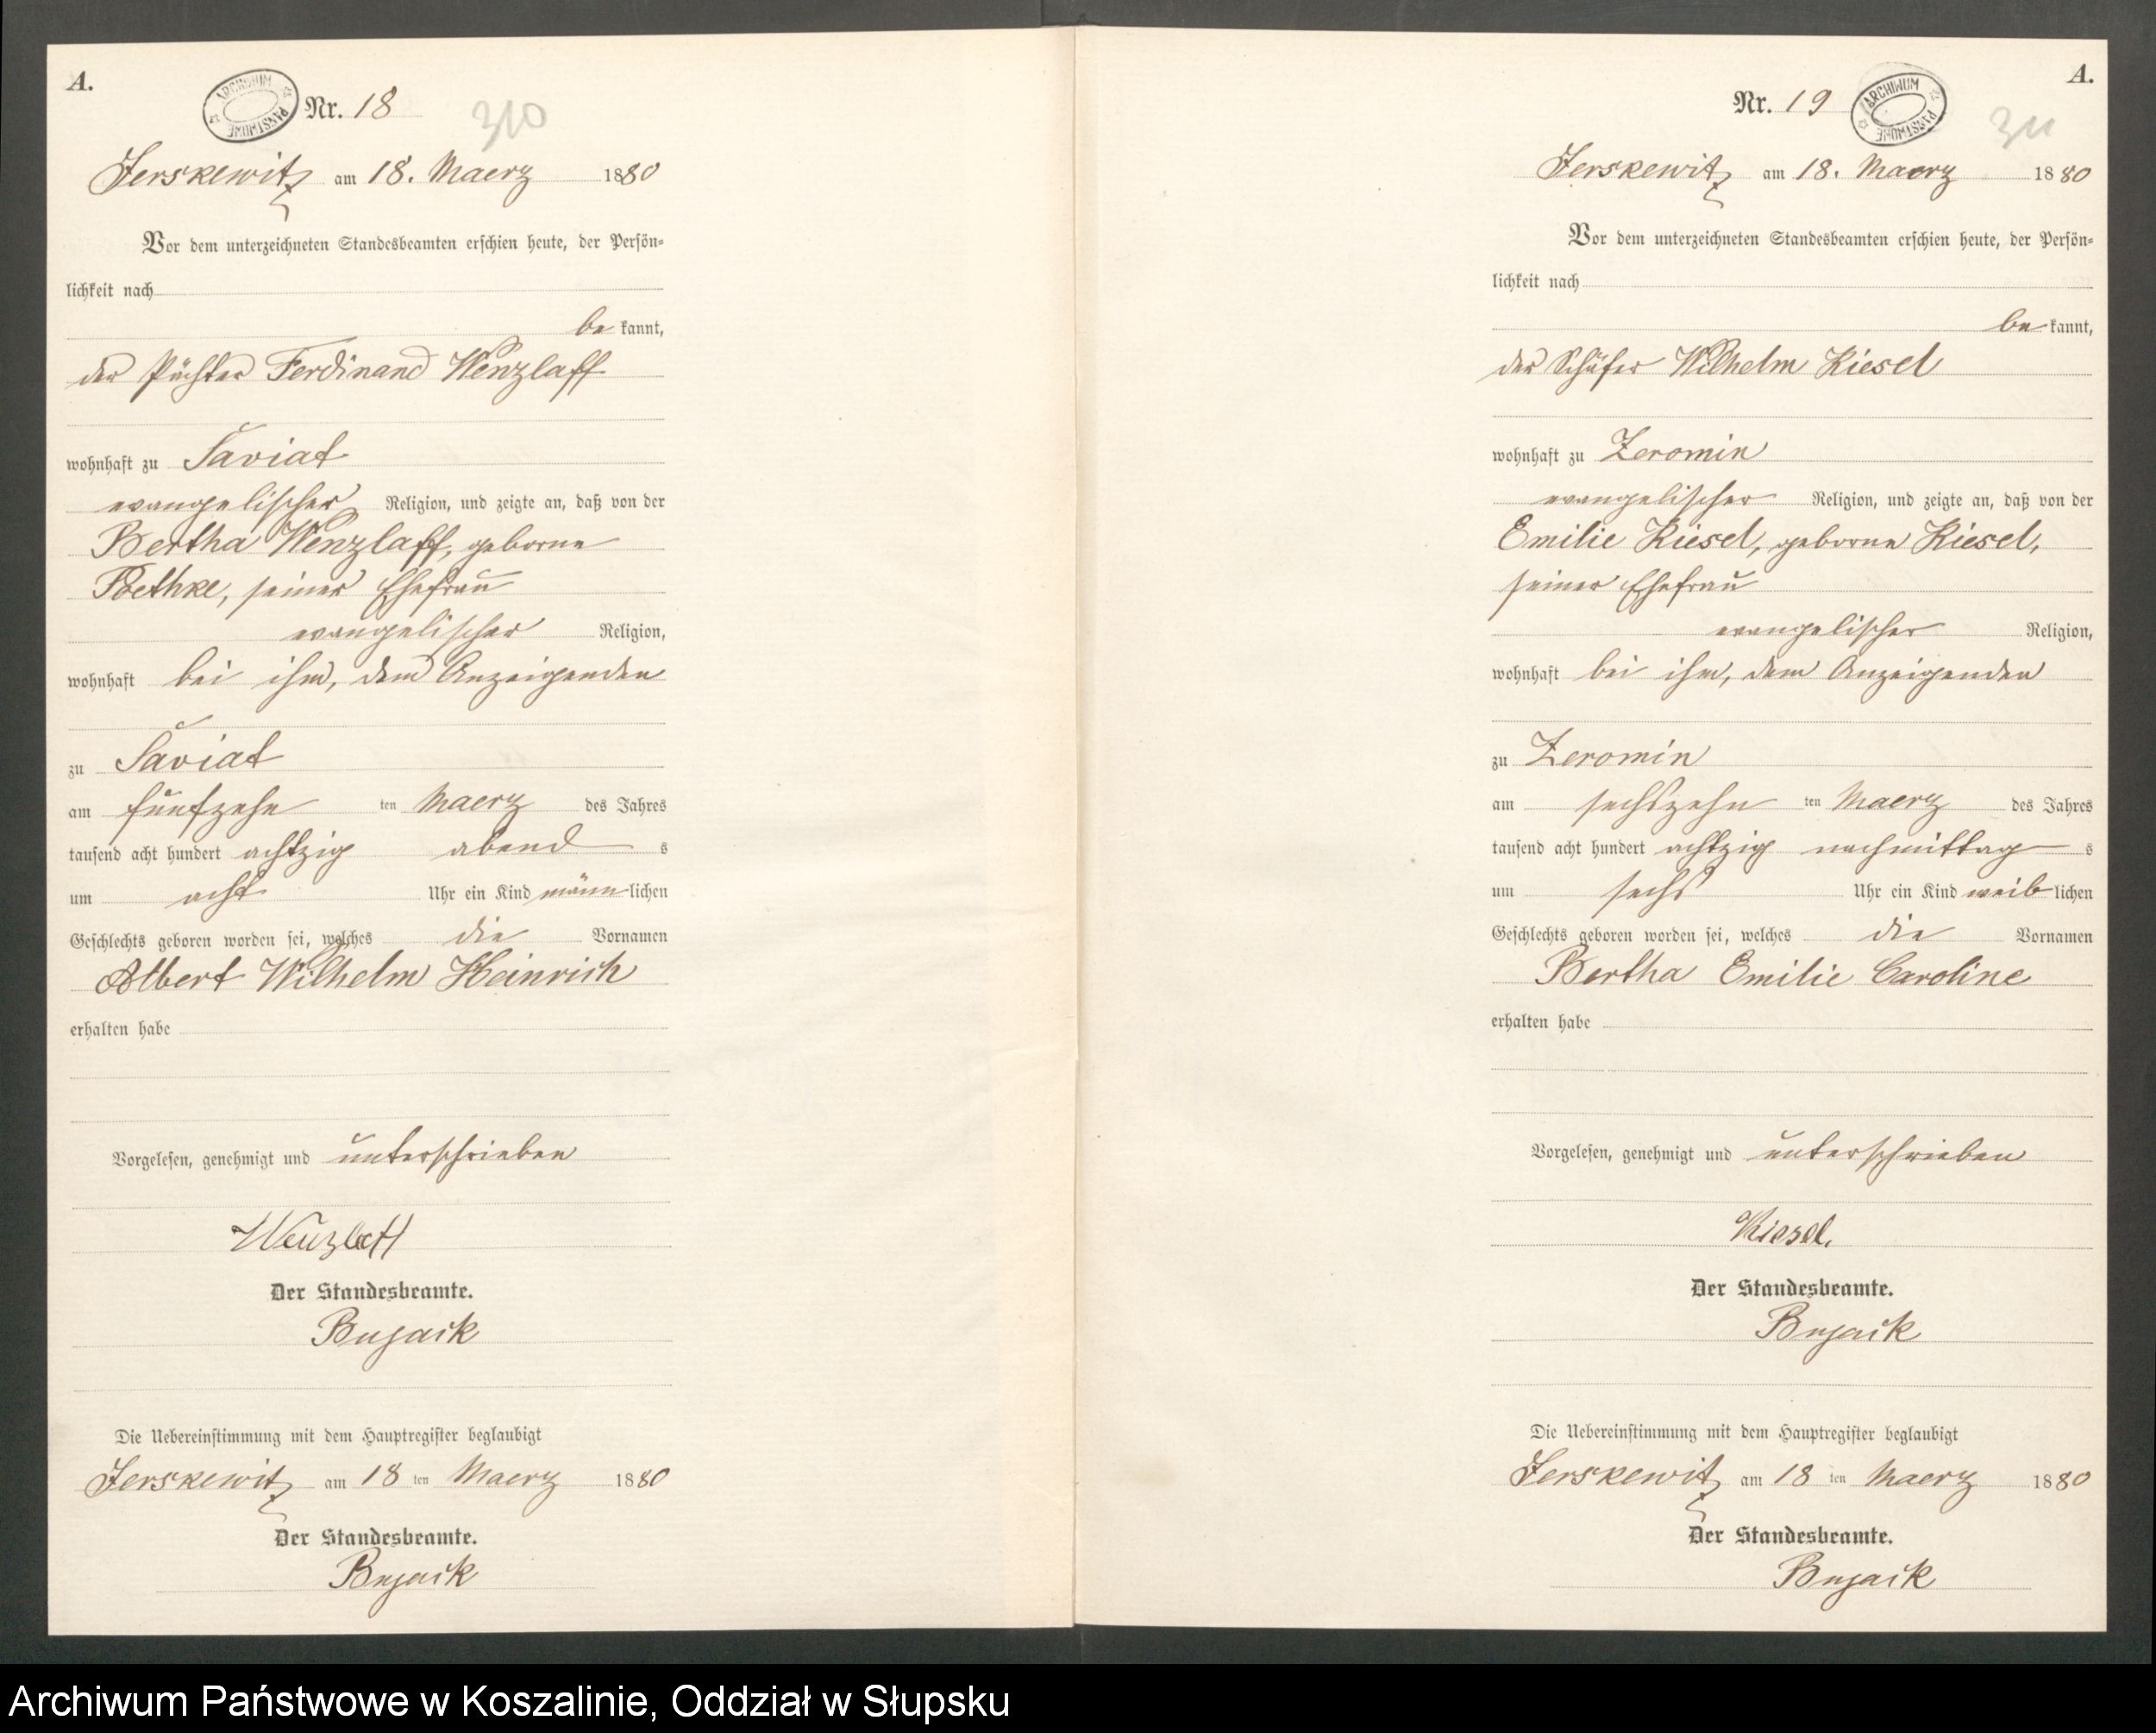 A.
ARCHIWUM PAŃSTWOWE
Nr. 18
310
Jerskewitz am 18. Maerz 1880
Vor dem unterzeichneten Standesbeamten erschien heute, der Persön-
lichkeit nach
be kannt,
der Pächter Ferdinand Wenzlaff
wohnhaft zu Saviat
evangelischer Religion, und zeigte an, daß von der
Bertha Wenzlaff, geborne
Bethke, seiner Ehefrau
evangelischer Religion,
wohnhaft bei ihm, dem Anzeigenden
zu Saviat
am fünfzehn ten Maerz des Jahres
tausend acht hundert achtzig abend s
um acht Uhr ein Kind männ lichen
Geschlechts geboren worden sei, welches die Vornamen
Albert Wilhelm Heinrich
erhalten habe
Vorgelesen, genehmigt und unterschrieben
Wenzlaff
Der Standesbeamte.
Bujack
Die Uebereinstimmung mit dem Hauptregister beglaubigt
Jerskewitz am 18 ten Maerz 1880
Der Standesbeamte.
Bujack
A.
Nr. 19
ARCHIWUM PAŃSTWOWE
311
Jerskewitz am 18. Maerz 1880
Vor dem unterzeichneten Standesbeamten erschien heute, der Persön-
lichkeit nach
be kannt,
der Schäfer Wilhelm Kiesel
wohnhaft zu Zeromin
evangelischer Religion, und zeigte an, daß von der
Emilie Kiesel, geborne Kiesel,
seiner Ehefrau
evangelischer Religion,
wohnhaft bei ihm, dem Anzeigenden
zu Zeromin
am sechszehn ten Maerz des Jahres
tausend acht hundert achtzig nachmittag s
um sechs Uhr ein Kind weib lichen
Geschlechts geboren worden sei, welches die Vornamen
Bertha Emilie Caroline
erhalten habe
Vorgelesen, genehmigt und unterschrieben
Kiesel.
Der Standesbeamte.
Bujack
Die Uebereinstimmung mit dem Hauptregister beglaubigt
Jerskewitz am 18 ten Maerz 1880
Der Standesbeamte.
Bujack
Archiwum Państwowe w Koszalinie, Oddział w Słupsku